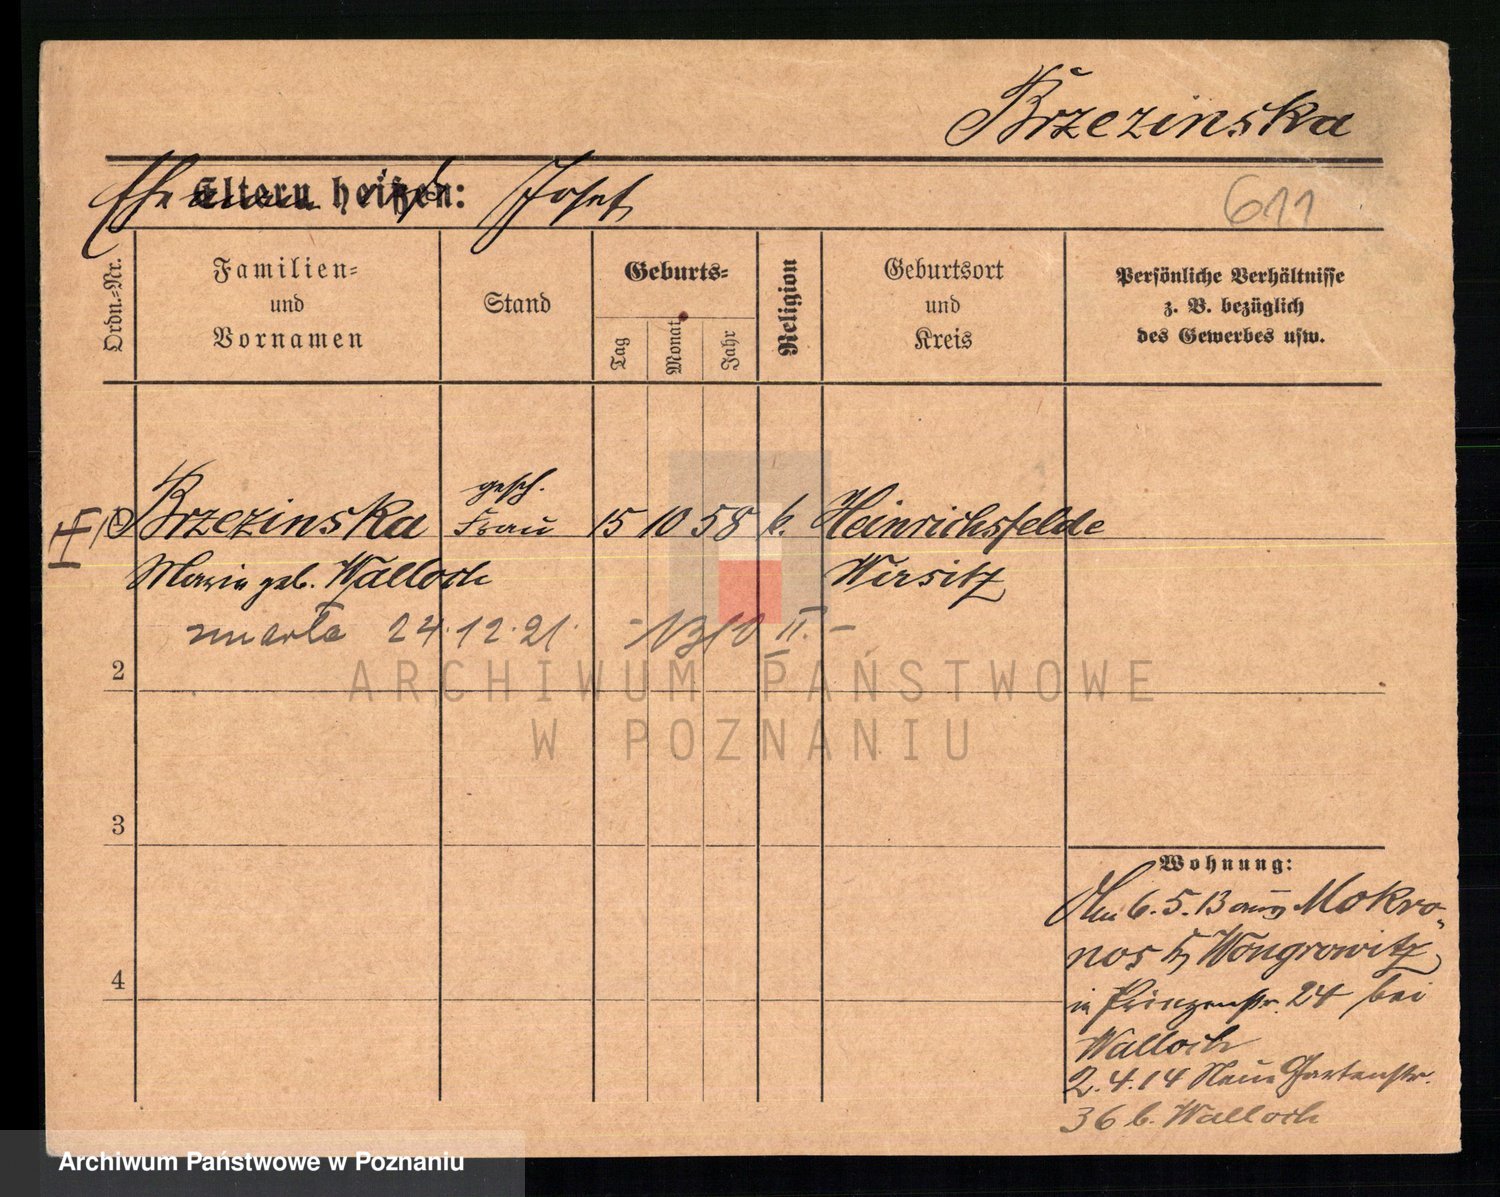 Brzezinska
Eltern heißen:
Ehemann hieß Josef
611
Ordn.-Nr.
Familien-
und
Vornamen
Stand
Geburts-
Tag
Monat
Jahr
Religion
Geburtsort
und
Kreis
Persönliche Verhältnisse
z. B. bezüglich
des Gewerbes usw.
gesch.
Brzezinska Frau 15 10 58 k. Heinrichsfelde
Maria geb. Walloch Wirsitz
zmarła 24.12.21.
2
ARCHIWUM PAŃSTWOWE
W POZNANIU
3
4
Wohnung:
Am 6.5.13 aus Mokro-
nos Kr. Wongrowitz
in Prinzenstr. 24 bei
Walloch
2.4.14 Neue Gartenstr.
36 b. Walloch
Archiwum Państwowe w Poznaniu